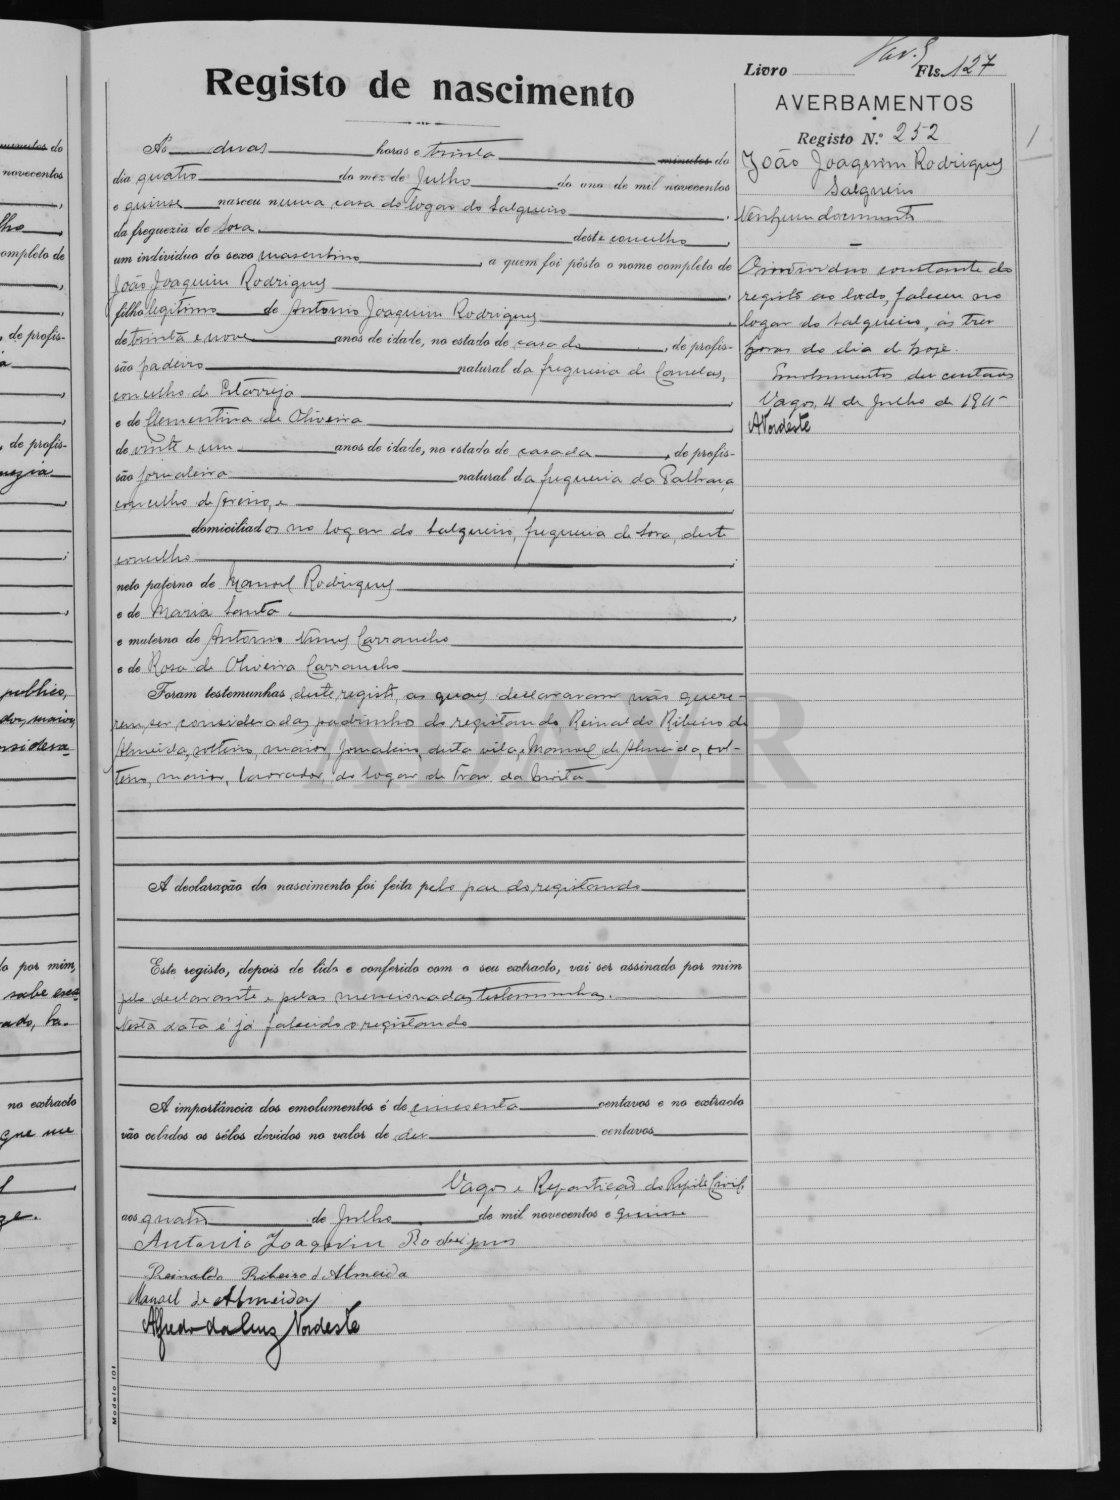 Registo de nascimento
Ás duas horas e trinta minutos do
dia quatro do mez de Julho do ano de mil novecentos
e quinse nasceu numa casa do logar do Salgueiro,
da freguezia de Sosa, deste concelho,
um individuo do sexo masculino, a quem foi pôsto o nome completo de
João Joaquim Rodrigues,
filho legitimo de Antonio Joaquim Rodrigues,
de trinta e nove anos de idade, no estado de casado, de profis-
são padeiro natural da freguesia de Canelas,
concelho de Estarreja,
e de Clementina de Oliveira,
de vinte e um anos de idade, no estado de casada, de profis-
são jornaleira natural da freguesia da Palhaça
concelho de, e
domiciliados no logar do Salgueiro, freguesia de Sosa, deste
concelho;
neto paterno de Manoel Rodrigues
e de Maria Santa,
e materno de Antonio Nunes Carrancho
e de Rosa de Oliveira Carrancho
Foram testemunhas deste registo, as quaes declararam não quere-
rem ser consideradas padrinhos do registando, Reinaldo Ribeiro de
Almeida, solteiro, maior, jornaleiro, desta vila, e Manuel de Almeida, sol-
teiro, maior, lavrador, do logar de da
A declaração do nascimento foi feita pelo pae do registando
Este registo, depois de lido e conferido com o seu extracto, vai ser assinado por mim
pelo declarante e pelas mencionadas testemunhas.
Nesta data é já falecido o registando
A importância dos emolumentos é de cincoenta centavos e no extracto
vão colados os sêlos devidos no valor de dez centavos
Vagos e Repartição do Reg. do Civil,
aos quatro de Julho de mil novecentos e quinse
Antonio Joaquim Rodrigues
Reinaldo Ribeiro d'Almeida
Manoel de Almeida
Alfredo da Luz Nordeste
Modelo 101
Livro Fls. 127
AVERBAMENTOS
Registo N.º 252
João Joaquim Rodrigues
Salgueiro
Nenhum documento
O individuo constante do
registo ao lado, faleceu no
logar do Salgueiro, ás tres
horas do dia de hoje.
Emolumentos dez centavos
Vagos, 4 de Julho de 1915
ANordeste
1
ADAVR
minutos do
novecentos
lho
ompleto de
, de profis-
, de profis-
publico,
do por mim,
sabe escre
no extracto
que me